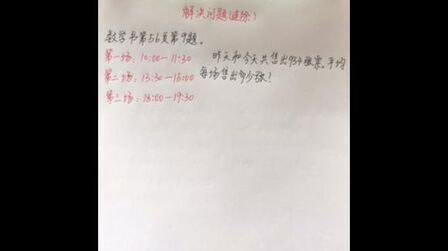 解决问题(连除)
数学书第56页第9题。
第一场:10:00—11:30 昨天和今天共售出934张票,平均
第二场:13:30—15:00 每场售出多少张?
第三场:18:00—19:30